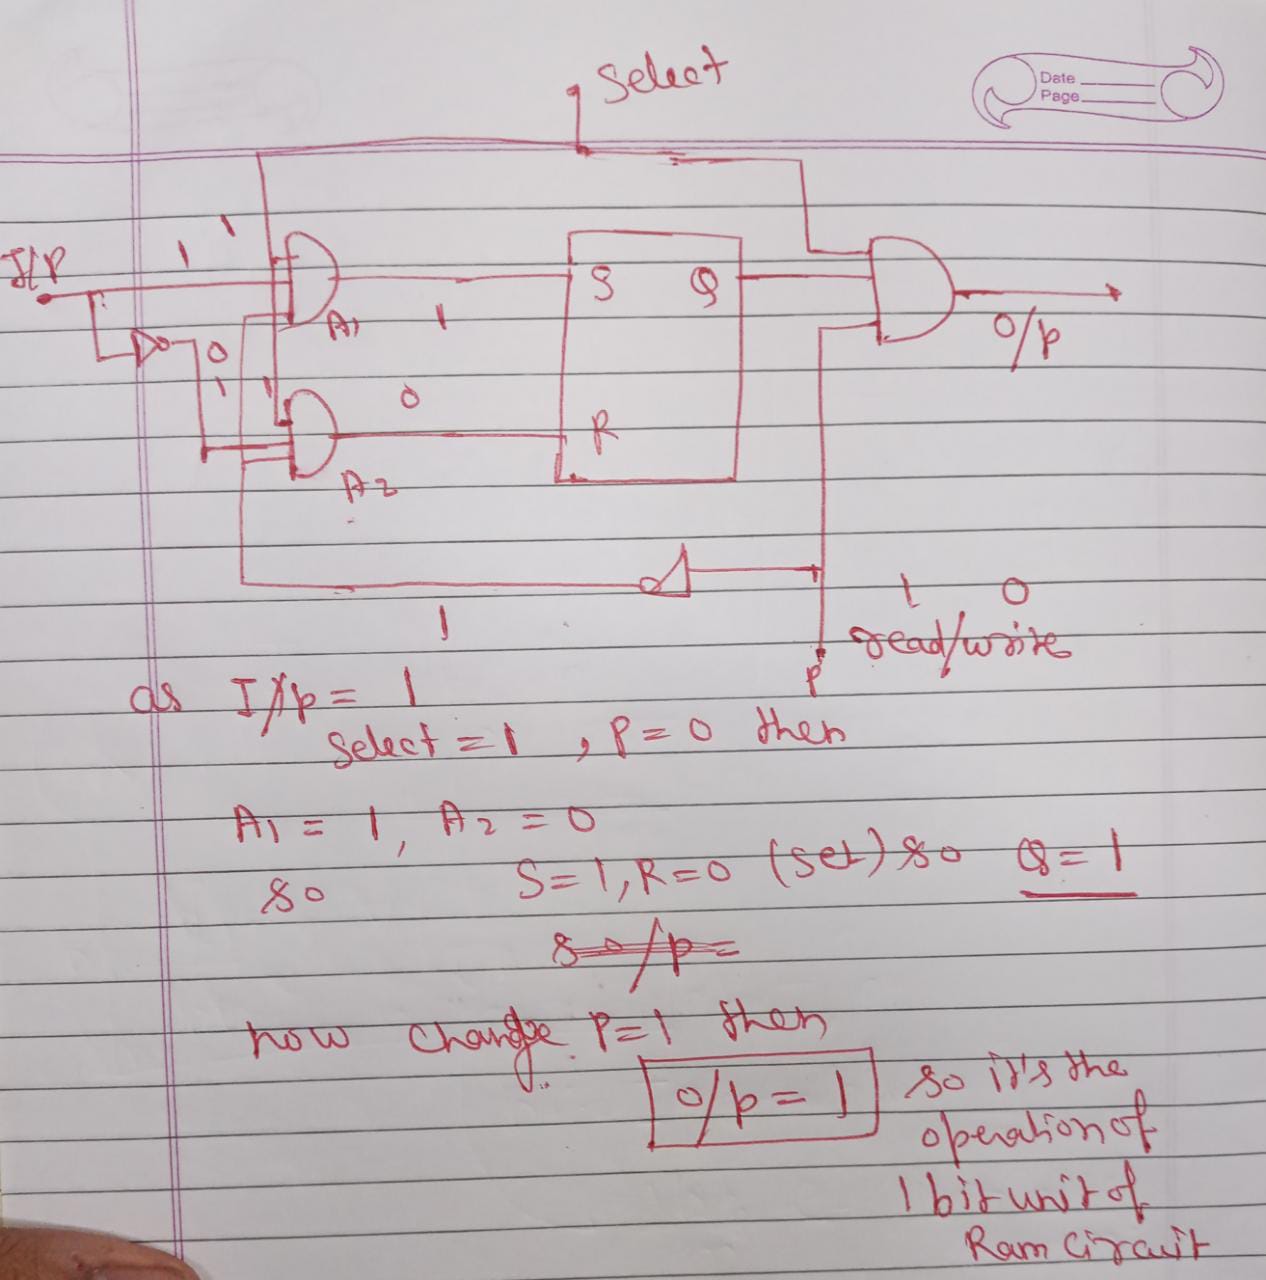 Select
Date
Page
I/P
1 1
S Q
A1
1
0
o/p
1 1
0
R
A2
1 0
read/write
1
P
as I/p = 1
Select = 1 , P = 0 then
A1 = 1, A2 = 0
so S=1, R=0 (set) so Q=1
so/p=
now change P=1 then
o/p = 1
so it's the
operation of
1 bit unit of
Ram Circuit